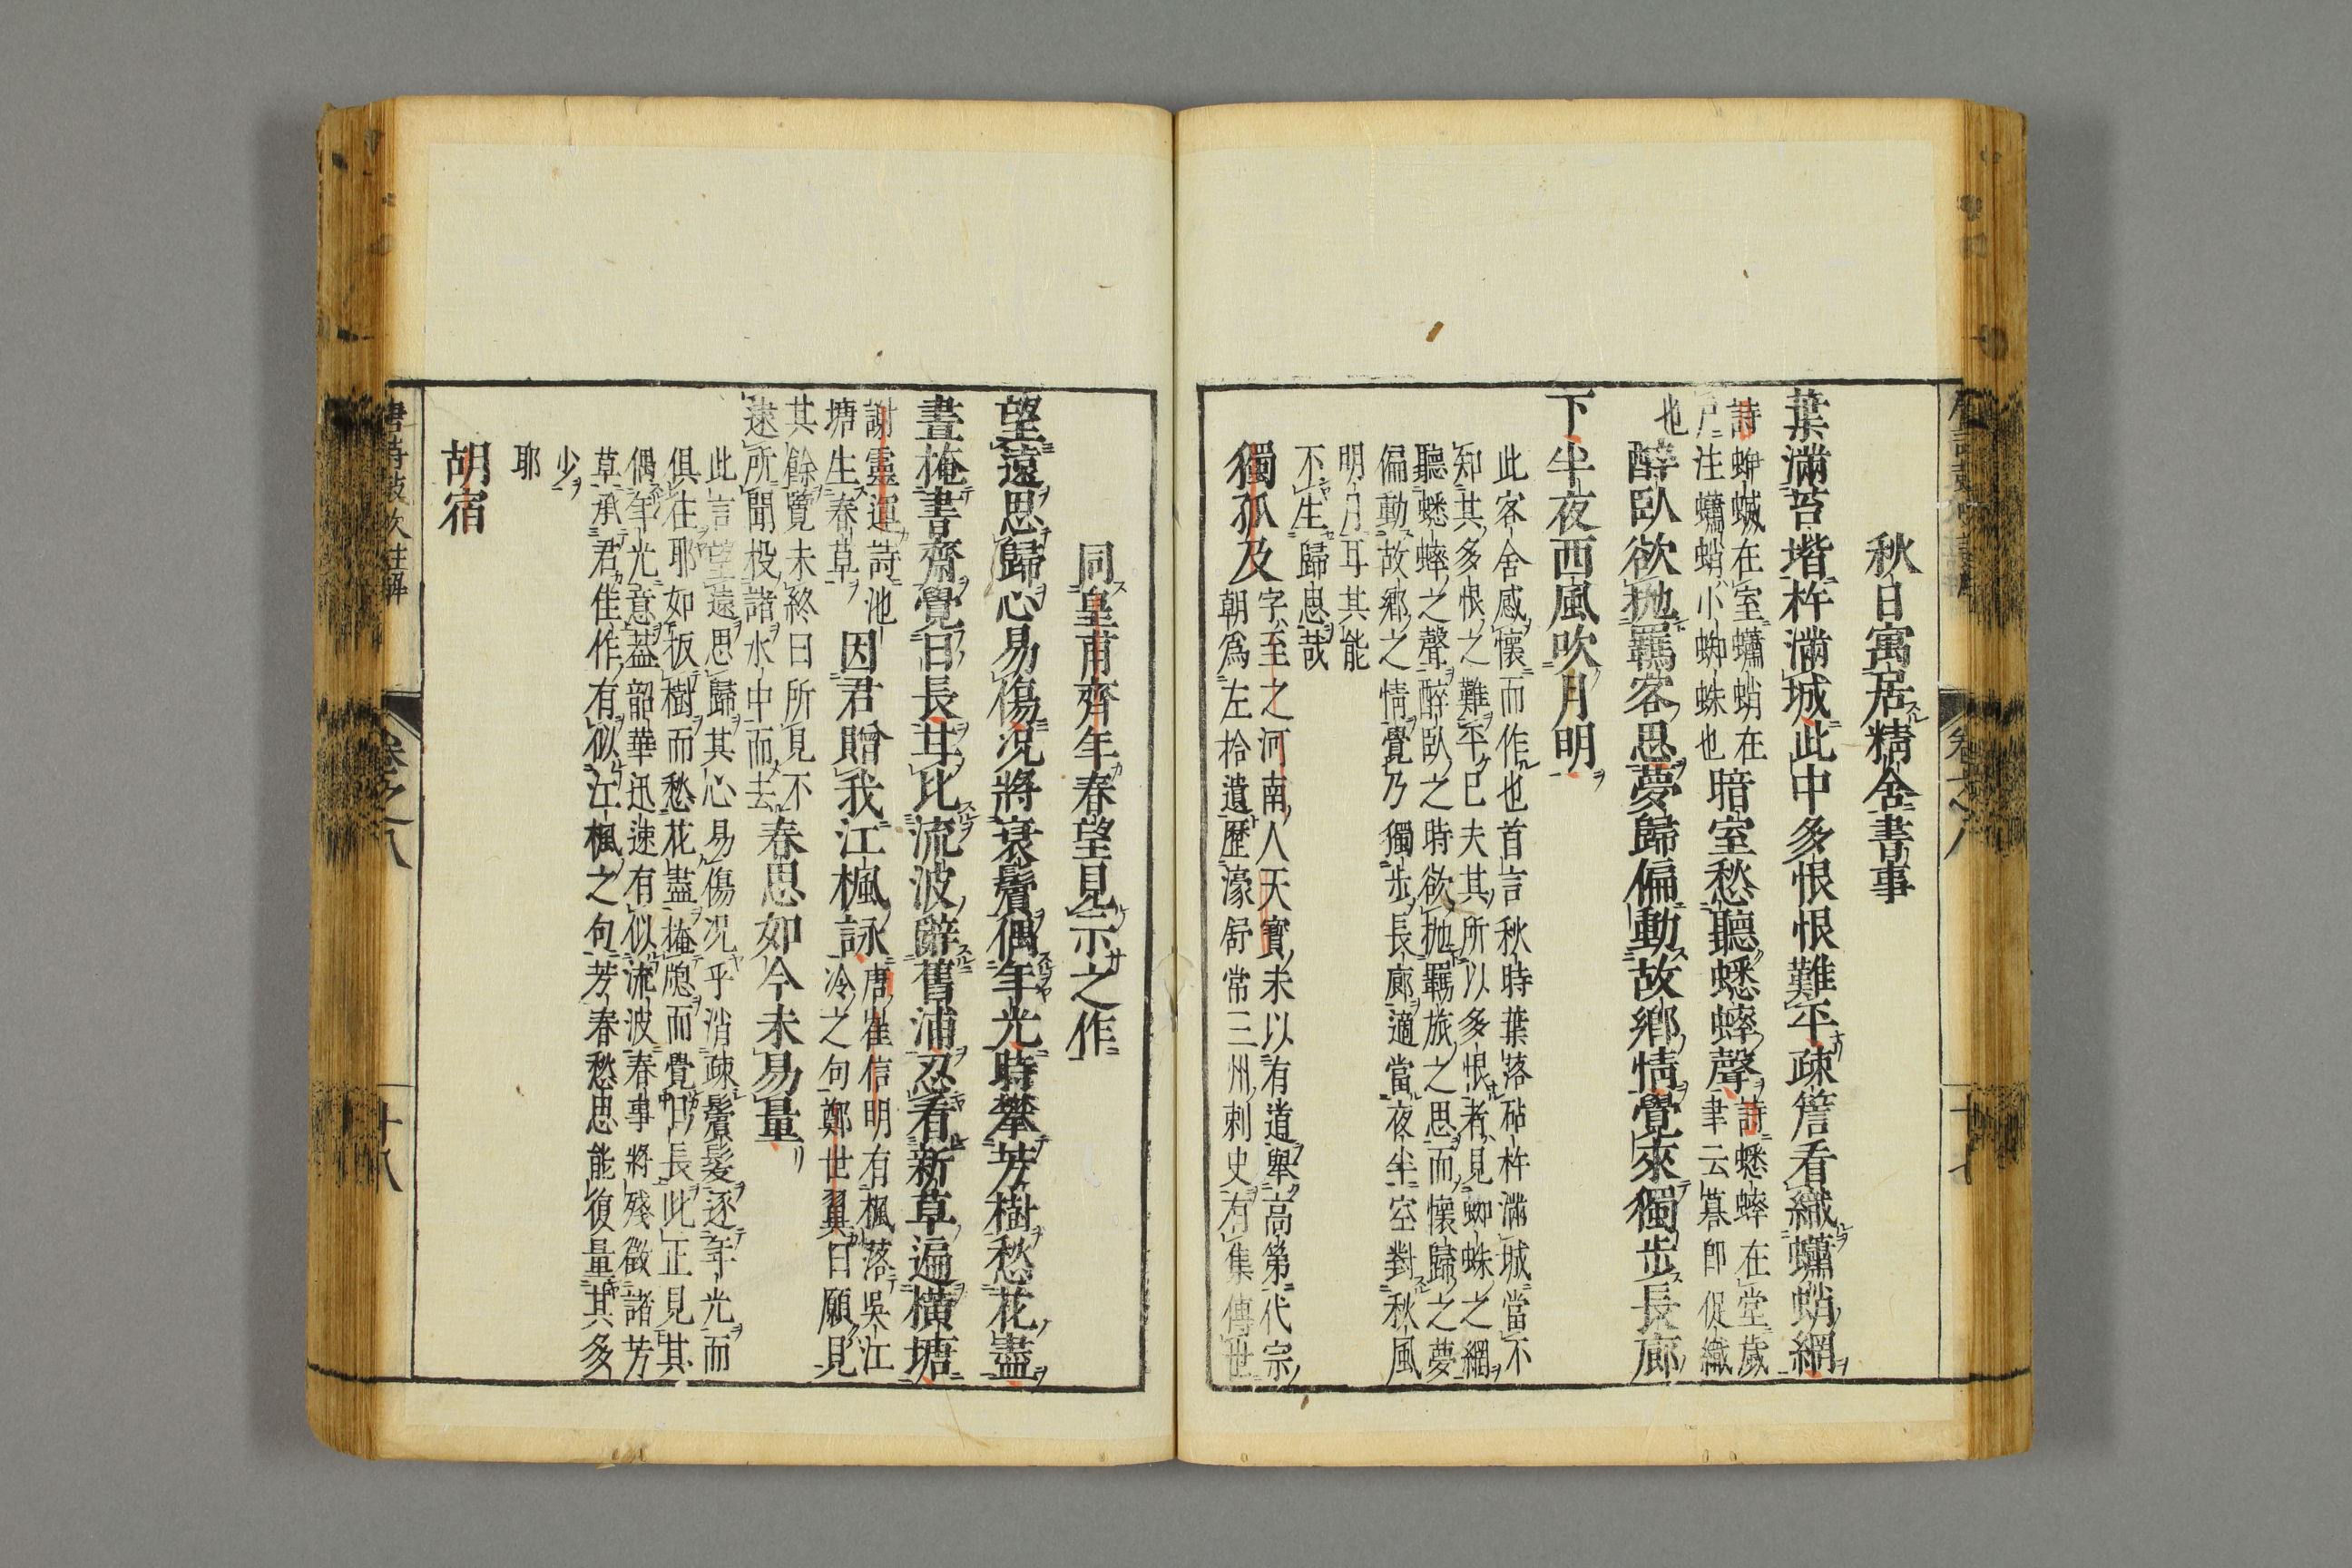 秋日寓居精舍書事
葉滿苔堦杵滿城此中多恨恨難平疎簷看織蠨蛸網
詩蛜蝛在室蠨蛸在
戶注蠨蛸小蜘蛛也
暗室愁聽蟋蟀聲
詩蟋蟀在堂歲
聿云暮即促織
也
醉臥欲抛羈客思夢歸偏動故鄉情覺來獨步長廊
下半夜西風吹月明
此客舍感懷而作也首言秋時葉落砧杵滿城當不
知其多恨之難平已夫其所以多恨者見蜘蛛之網
聽蟋蟀之聲醉臥之時欲抛羈旅之思而懷歸之夢
偏動故鄉之情覺乃獨步長廊適當夜半空對秋風
明月耳其能
不生歸思哉
獨孤及
字至之河南人天寶未以有道舉高第代宗
朝爲左拾遺歷濠舒常三州刺史有集傳世
同皇甫齊年春望見示之作
望遠思歸心易傷况將衰鬢偶年光時攀芳樹愁花盡
晝掩書齋覺日長甘比流波辭舊浦忍看新草遍橫塘
謝靈運詩池
塘生春草
因君贈我江楓詠
唐崔信明有楓落吳江
冷之句鄭世翼曰願見
其餘覽未終曰所見不
逮所聞投諸水中而去
春思如今未易量
此言望遠思歸其心易傷况乎消疎鬢髮逐年光而
俱往耶如扳樹而愁花盡掩牕而覺日長此正見其
偶年光意葢韶華迅速有似流波春事將殘徵諸芳
草承君佳作有似江楓之句芳春愁思能復量其多
少
耶
胡宿
唐詩鼓吹註解
卷之八
十八